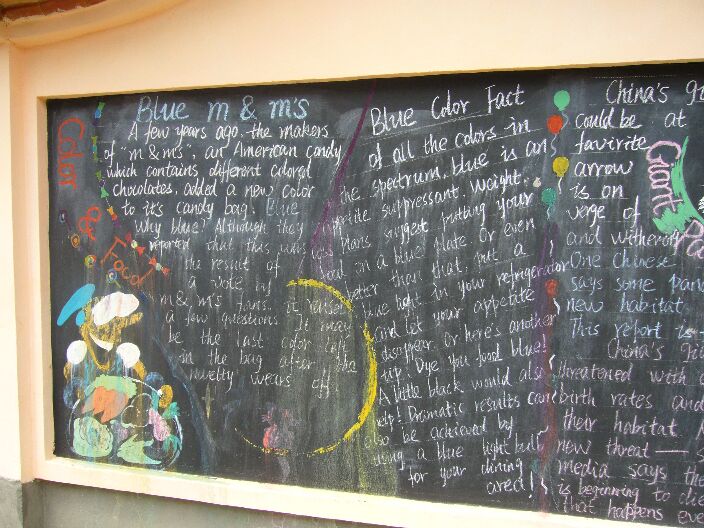 Color & Food
Blue m & m's
A few years ago, the makers
of "m & ms", an American candy
which contains different colored
chocolates, added a new color
to it's candy bag. Blue
Why blue? Although they
reported that this was
the result of
a vote by
m & m's fans. it raises
a few questions. It may
be the last color left
in the bag after the
novelty wears off
Blue Color Fact
of all the colors in
the spectrum, blue is an
suppressant. Weight
plans suggest putting your
in a blue plate or even
better than that, put a
blue light in your refrigerator
and let your appetite
disappear. Or here's another
tip: Dye you food blue!
A little black would also
help! Dramatic results can
also be achieved by
using a blue light bulb
for your dining
area!
China's
could be at
favirite
arrow
is on
verge of
and
One Chinese
says some
new habitat
This report is
China's
threatened with
birth rates and
their habitat
new threat —
media says the
is beginning to die
that happens
Giant